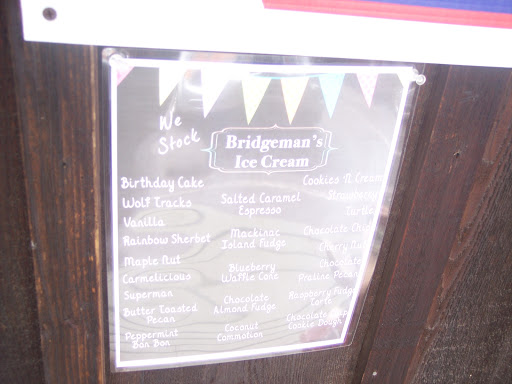 We
Stock
Bridgeman's
Ice Cream
Birthday Cake
Wolf Tracks
Vanilla
Rainbow Sherbet
Maple Nut
Carmelicious
Superman
Butter Toasted
Pecan
Peppermint
Bon Bon
Salted Caramel
Espresso
Mackinac
Island Fudge
Blueberry
Waffle Cone
Chocolate
Almond Fudge
Coconut
Commotion
Cookies N Cream
Strawberry
Turtle
Chocolate Chip
Cherry Nut
Chocolate
Praline Pecan
Raspberry Fudge
Torte
Chocolate Chip
Cookie Dough